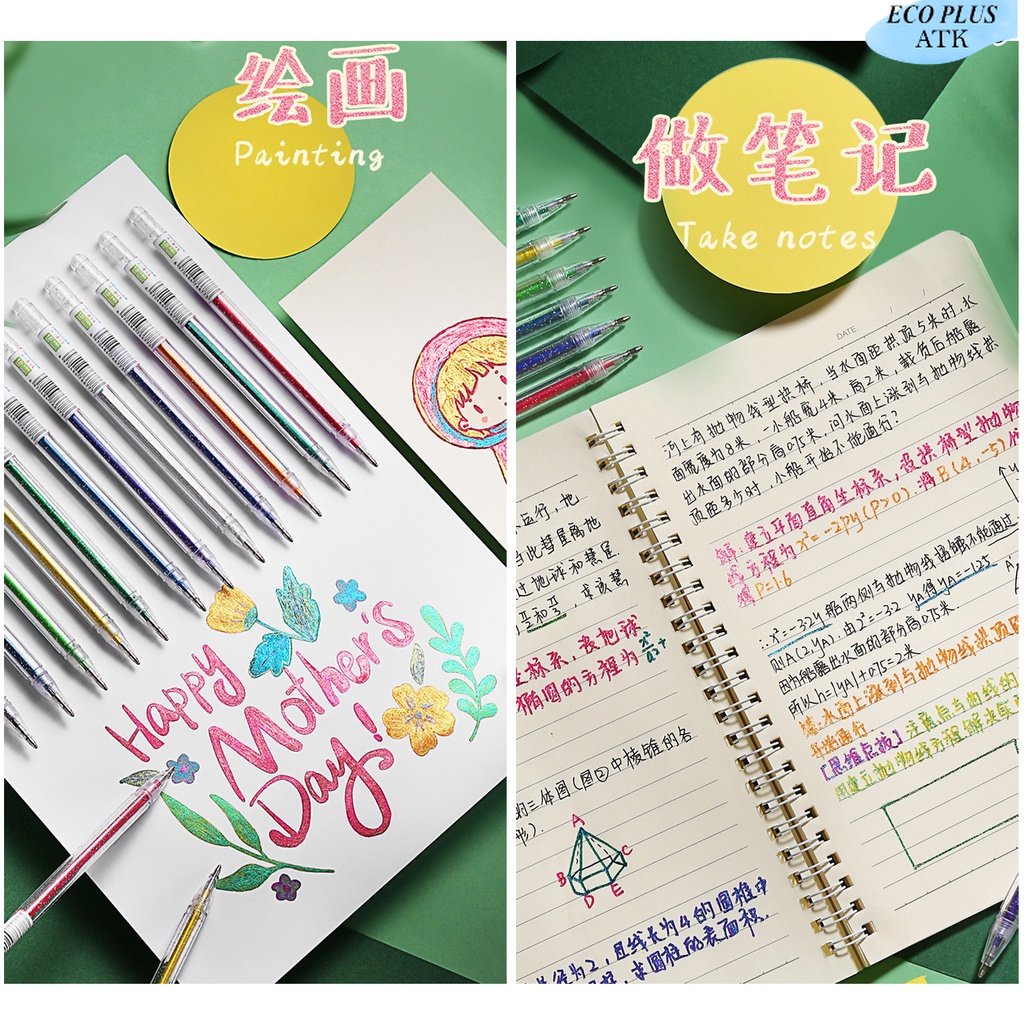 ECO PLUS
ATK
绘画
Painting
Happy
Mother's
Day!
做笔记
Take notes
DATE.
河上有抛物线型拱桥,当水面距拱顶5米时,水
面宽度为8米,一小船宽4米,高2米,载货后船露
出水面的部分高0.75米,问水面上涨到与抛物线拱
顶距多少时,小船开始不能通行?
解:建立平面直角坐标系,设拱桥型抛物
线方程为x²=-2py(P>0).将B(4,-5)
P=1.6
∴x²=-3.2y 船两侧与抛物线接触不能通过
则A(2,yA).由2²=-3.2 yA得yA=-1.25
因为船露出水面的部分高0.75米.
所以h=|yA|+0.75=2米
答:水面上涨到与抛物线拱顶
[思维点拨]注意点与曲线的
运行,地
当此彗星离地
过地球和彗星
坐标系,设地球
椭圆的方程为
中棱锥的各
的三体图(图②
形).
A
B
C
D
E
径为2,且线长为4的圆柱中
求圆柱的表面积.